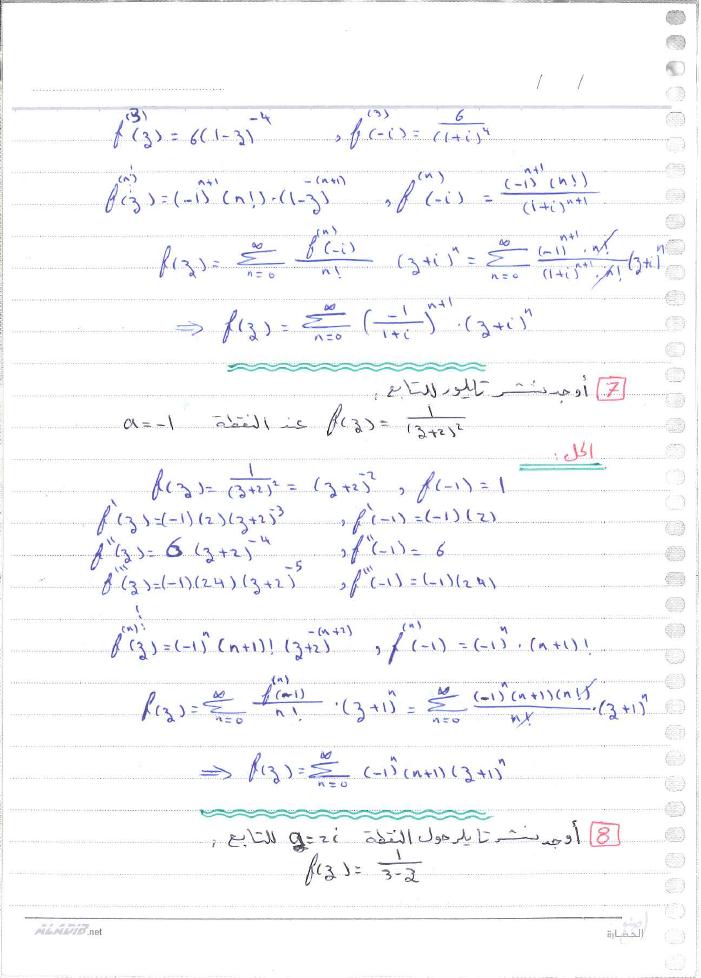 / /
f⁽³⁾(z) = 6(1-z)⁻⁴ , f⁽³⁾(-i) = 6/(1+i)⁴
f⁽ⁿ⁾(z) = (-1)ⁿ⁺¹ (n!)·(1-z)⁻⁽ⁿ⁺¹⁾ , f⁽ⁿ⁾(-i) = (-1)ⁿ⁺¹ (n!)/(1+i)ⁿ⁺¹
f(z) = ∞Σn=0 f⁽ⁿ⁾(-i)/n! (z+i)ⁿ = ∞Σn=0 (-1)ⁿ⁺¹·n!/(1+i)ⁿ⁺¹·n! (z+i)ⁿ
⇒ f(z) = ∞Σn=0 (-1/1+i)ⁿ⁺¹·(z+i)ⁿ
7 أوجد نشر تايلور للتابع :
f(z) = 1/(z+2)² عند النقطة a=-1
الحل :
f(z) = 1/(z+2)² = (z+2)⁻² , f(-1) = 1
f'(z) = (-1)(2)(z+2)⁻³ , f'(-1) = (-1)(2)
f''(z) = 6(z+2)⁻⁴ , f''(-1) = 6
f'''(z) = (-1)(24)(z+2)⁻⁵ , f'''(-1) = (-1)(24)
f⁽ⁿ⁾(z) = (-1)ⁿ (n+1)! (z+2)⁻⁽ⁿ⁺²⁾ , f⁽ⁿ⁾(-1) = (-1)ⁿ·(n+1)!
f(z) = ∞Σn=0 f⁽ⁿ⁾(-1)/n! ·(z+1)ⁿ = ∞Σn=0 (-1)ⁿ(n+1)(n!)/n! ·(z+1)ⁿ
⇒ f(z) = ∞Σn=0 (-1)ⁿ(n+1)(z+1)ⁿ
8 أوجد نشر تايلر حول النقطة a=2i للتابع :
f(z) = 1/3-z
ALADIB.net
الحضارة